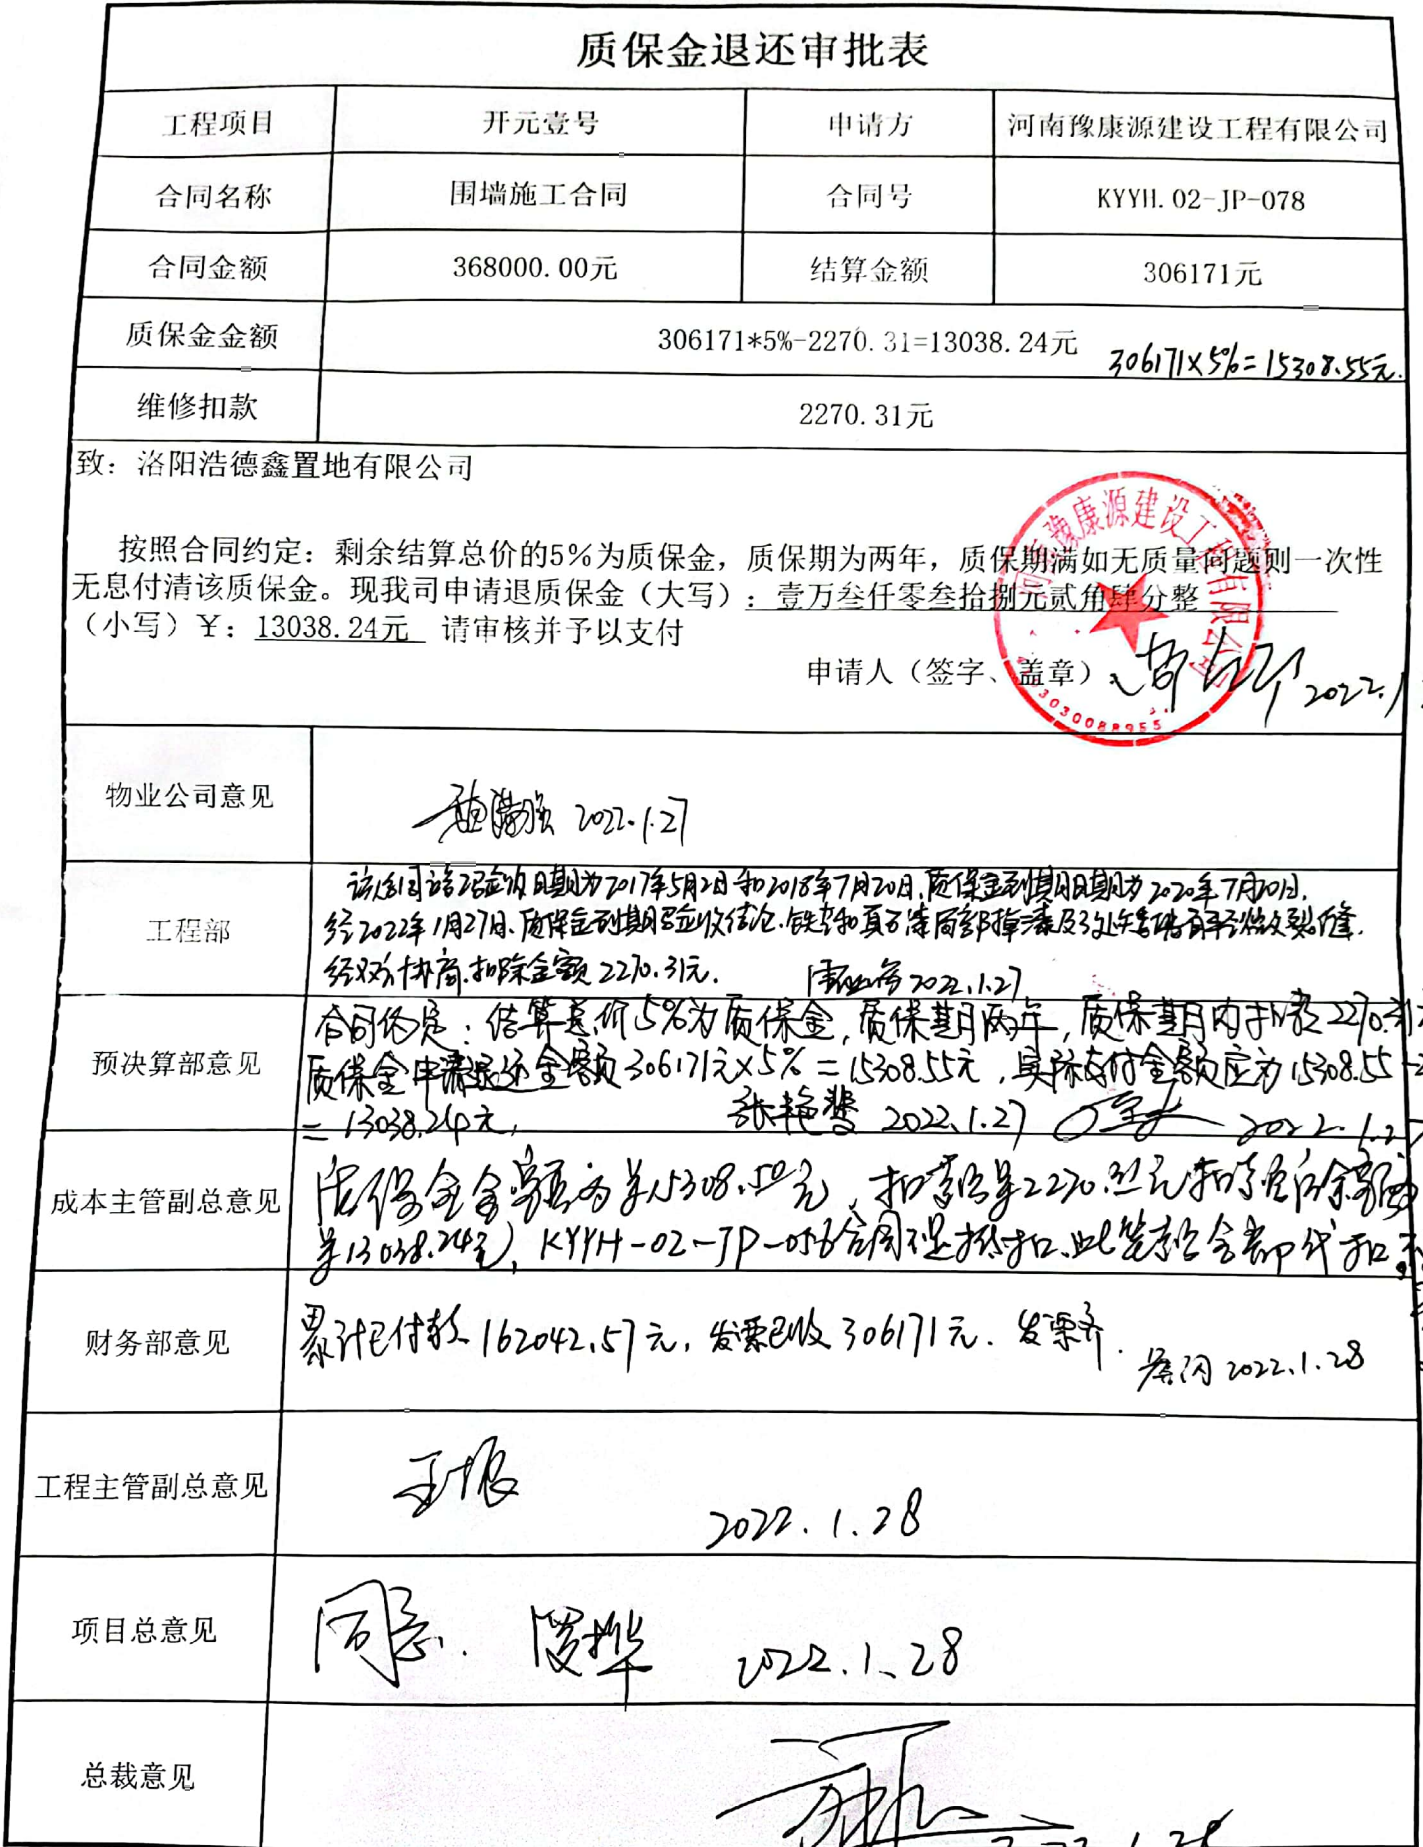 质保金退还审批表
工程项目 开元壹号 申请方 河南豫康源建设工程有限公司
合同名称 围墙施工合同 合同号 KYYH.02-JP-078
合同金额 368000.00元 结算金额 306171元
质保金金额 306171*5%-2270.31=13038.24元 306171×5%=15308.55元.
维修扣款 2270.31元
致：洛阳浩德鑫置地有限公司
按照合同约定：剩余结算总价的5%为质保金，质保期为两年，质保期满如无质量问题则一次性
无息付清该质保金。现我司申请退质保金（大写）：壹万叁仟零叁拾捌元贰角肆分整
（小写）¥：13038.24元 请审核并予以支付
河南豫康源建设工程有限公司
申请人（签字、盖章） 2022.1
物业公司意见 2022.1.27
工程部 该合同 验收日期为2017年5月2日和2018年7月20日.质保金到期日期为2020年7月20日.
经2022年1月27日.质保金到期验收结论.铁艺和真石漆局部掉漆及 裂缝.
经双方协商.扣除金额2270.31元. 2022.1.27
预决算部意见 合同约定：结算总价5%为质保金，质保期两年，质保期内扣款2270.31
质保金申请退还金额306171元×5%=15308.55元，实际支付金额应为15308.55-
=13038.24元, 张艳 2022.1.27 2022.1.27
成本主管副总意见 质保金金额为 15308.50元，扣款 2270.31元扣款后余额为
13038.24元，KYYH-02-JP-056合同 此笔款全部代扣.
财务部意见 累计已付款162042.57元，发票已收306171元. 发票齐.
2022.1.28
工程主管副总意见 王
2022.1.28
项目总意见 同意. 2022.1.28
总裁意见